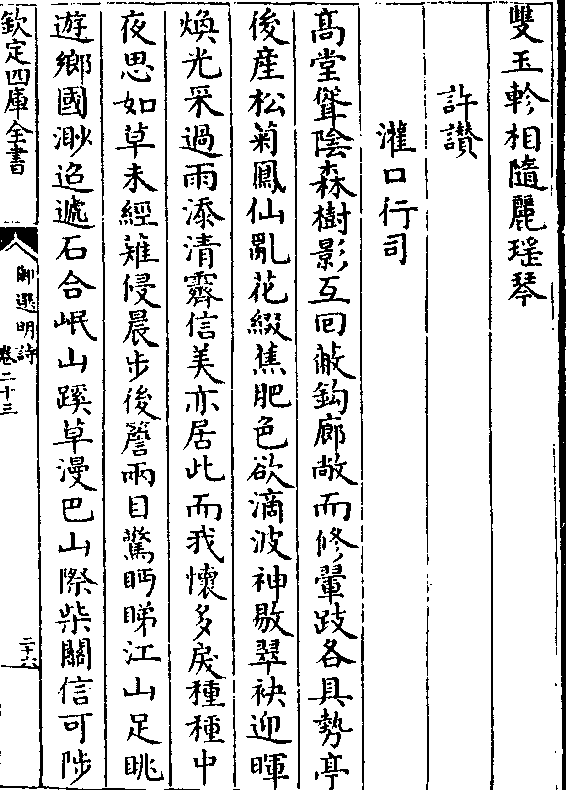 雙玉軫相隨麗瑤琴
許讃
灌口行司
髙堂聳陰森樹影互回蔽鈎廊敞而修翬跂各具勢亭
後産松菊鳳仙亂花綴蕉肥色欲滴波神敭翠袂迎暉
煥光采過雨添清霽信美亦居此而我懷多戾種種中
夜思如草未經薙侵晨步後簷兩目驚眄睇江山足眺
遊鄉國渺迢遞石合岷山蹊草漫巴山際柴關信可陟
欽定四庫全書
御選明詩
卷二十三
二十六